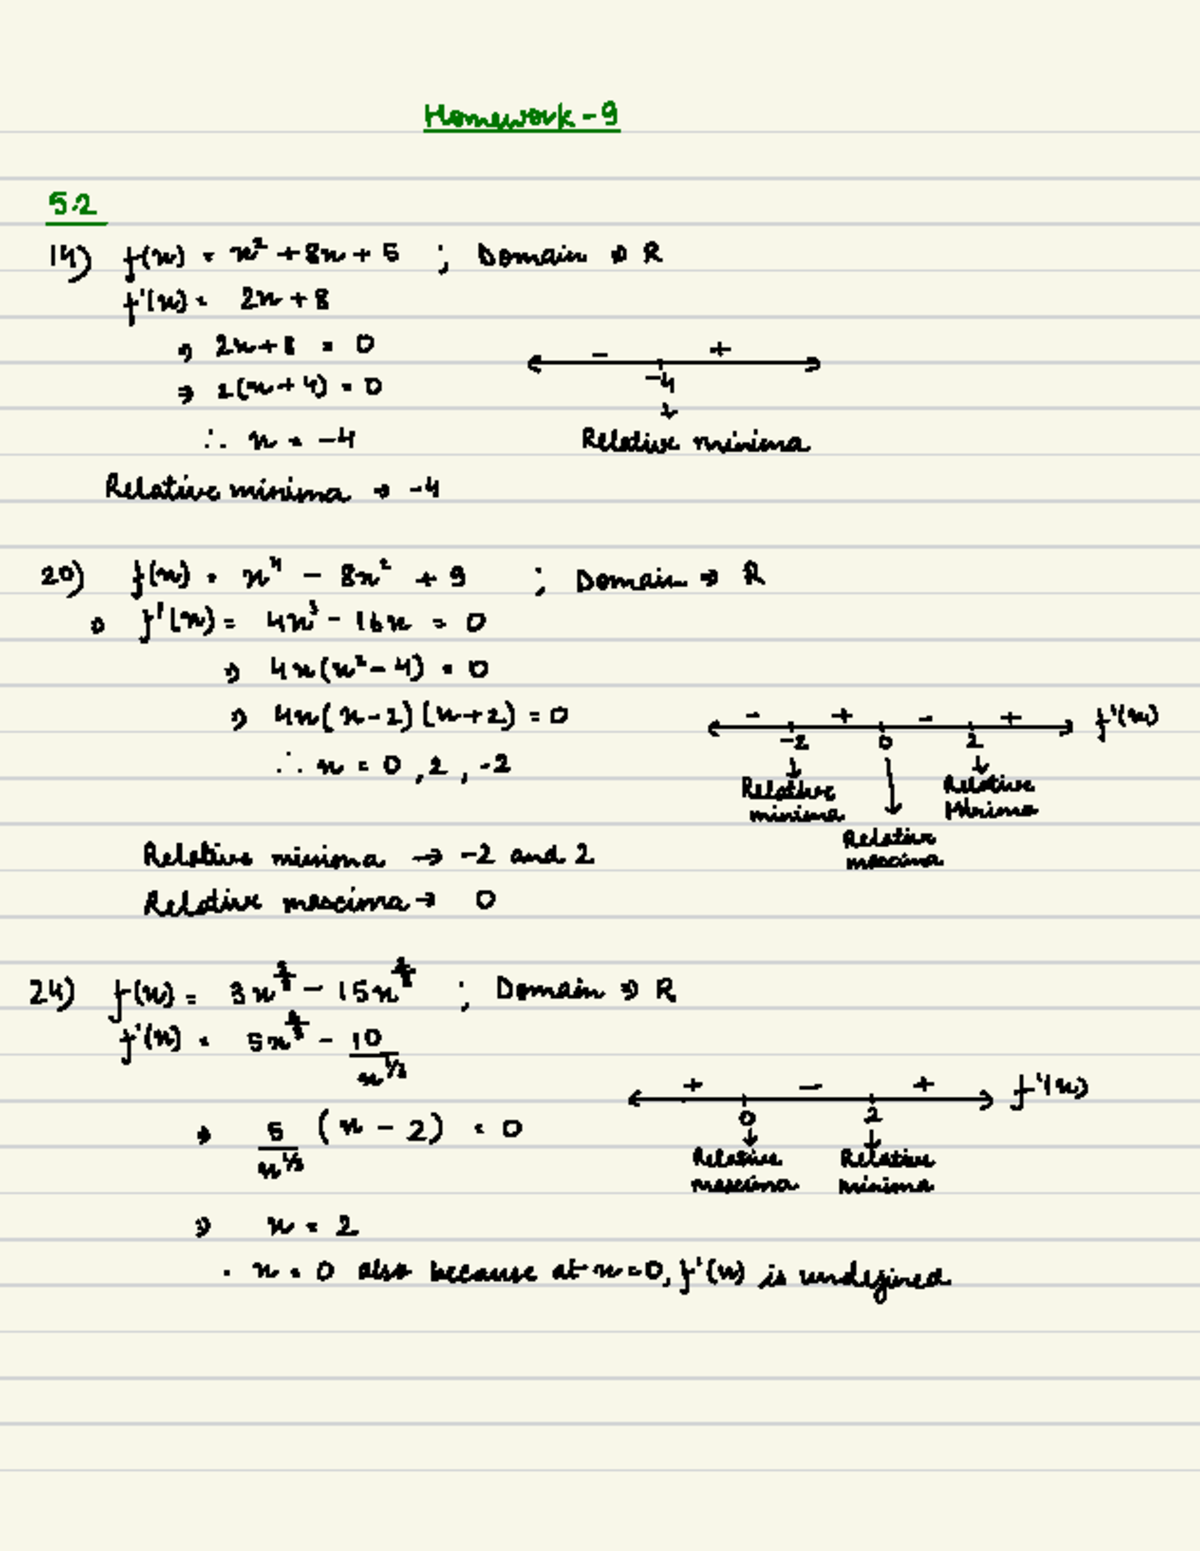 Homework - 9
5.2
14) f(x) = x² + 8x + 5 ; Domain ⇒ R
f'(x) = 2x + 8
⇒ 2x + 8 = 0
⇒ 2(x + 4) = 0
∴ x = -4
- +
-4
↓
Relative minima
Relative minima → -4
20) f(x) = x⁴ - 8x² + 9 ; Domain ⇒ R
⇒ f'(x) = 4x³ - 16x = 0
⇒ 4x(x² - 4) = 0
⇒ 4x(x - 2)(x + 2) = 0
∴ x = 0, 2, -2
- + - + f'(x)
-2 0 2
↓ ↓ ↓
Relative minima
Relative maxima
Relative Minima
Relative minima → -2 and 2
Relative maxima → 0
24) f(x) = 3x^5/3 - 15x^2/3 ; Domain ⇒ R
f'(x) = 5x^2/3 - 10/x^1/3
⇒ 5/x^1/3 (x - 2) = 0
+ - + f'(x)
0 2
↓ ↓
Relative maxima
Relative minima
⇒ x = 2
. x = 0 also because at x = 0, f'(x) is undefined